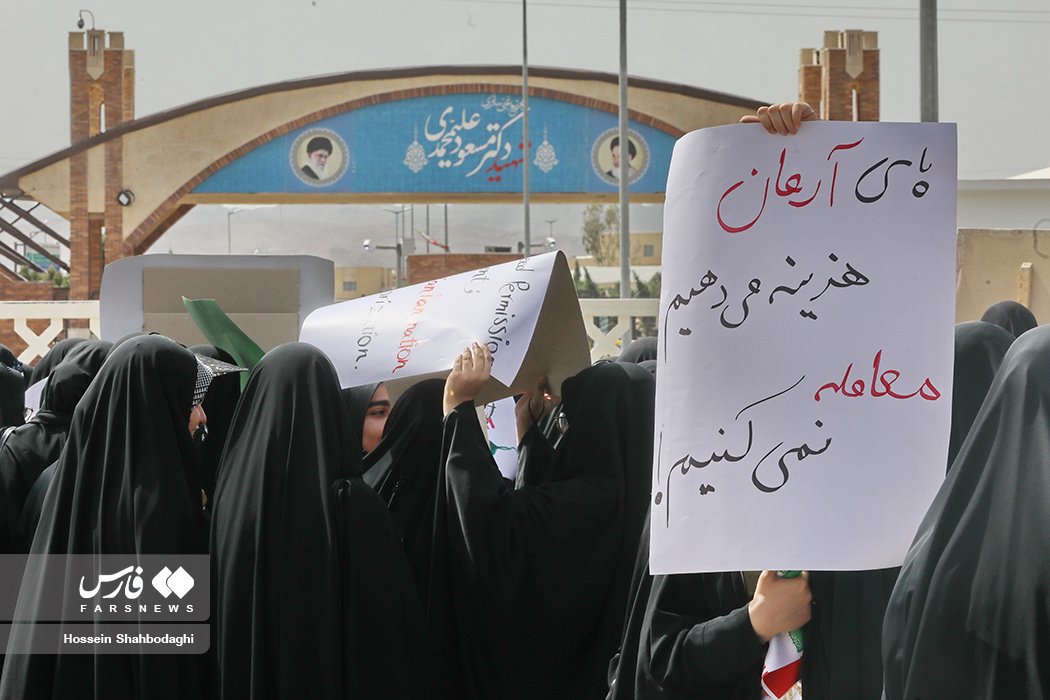 شهید دکتر مسعود علیمحمدی
پای آرمان
هزینه می‌دهیم
معامله
نمی‌کنیم!
permission
nation
فارس
FARSNEWS
Hossein Shahbodaghi